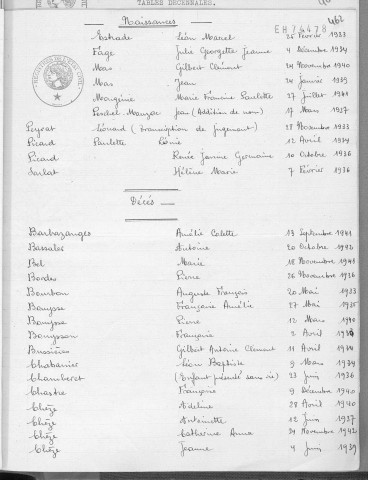 TABLES DÉCENNALES.
462
EH 74478
Naissances
Estrade Léon Marcel 25 Février 1933
Fage Julie Georgette Jeanne 4 Décembre 1934
Mas Gilbert Clément 24 Novembre 1940
Mas Jean 24 Janvier 1939
Mougène Marie Francine Paulette 27 Juillet 1941
jean (Addition de nom) 17 Mars 1937
Peyrat Léonard (Transcription de jugement) 18 Novembre 1933
Picard Paulette 12 Avril 1934
Picard Renée Jeanne Germaine 10 Octobre 1936
Sarlat Hélène Marie 7 Février 1936
Décés
Barbazanges Amélie Colette 13 Septembre 1941
Bassaler Antoine 20 Octobre 1942
Bel Marie 18 Novembre 1941
Bordes Pierre 26 Novembre 1936
Bourbon Auguste François 20 Mai 1933
Bouysse Françoise Amélie 27 Mai 1935
Bouysse Pierre 12 Mars 1940
Bouysson Françoise 2 Avril
Bussières Gilbert Antoine Clément 11 Avril 1934
Chabanier Léon Baptiste 9 Mars 1934
Chamberet (Enfant présenté sans vie) 23 Juin 1936
Chastre Françoise 9 Décembre 1940
Chèze Adeline 28 Avril 1940
Chèze Antoinette 12 Juin 1937
Chèze Catherine Anna 24 Novembre 1942
Chèze Jeanne 4 Juin 1939